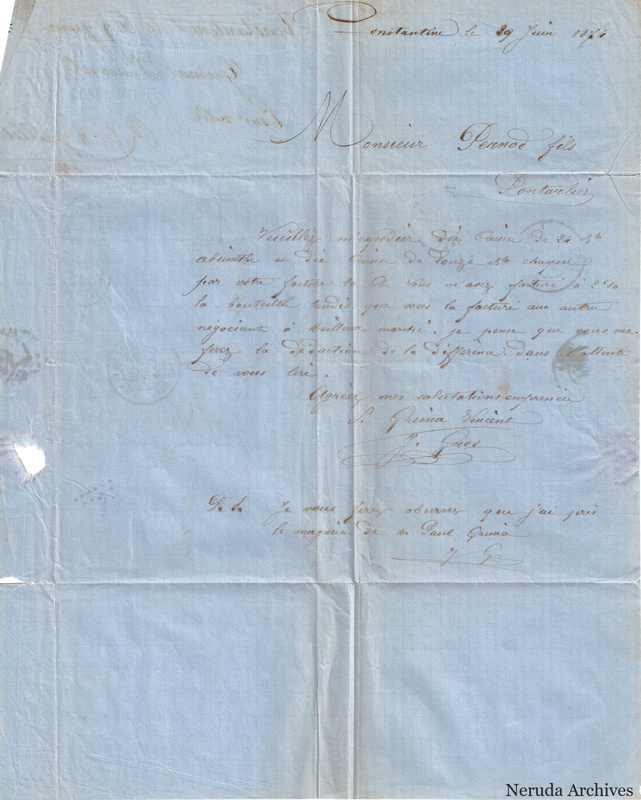 Constantine le 29 Juin 1874
Monsieur Pernod fils
Pontarlier
Veuillez m'expédier dix Caisse de 24 Bte
absinthe et dix Caisse de Douze Bte chacune
par votre facture le vous m'avez facturé à
la bouteille tandis que vous la facturé aux autre
negociant à Meilleur marché. je pense que vous me
ferez la déduction de la différence. dans l'attente
de vous lire
Agréez mes salutations empressées
P. Grima Vincent
J. Gres
P.S. Je vous ferez observer que j'ai pris
le magasin de m Paul Grima
J G
Neruda Archives